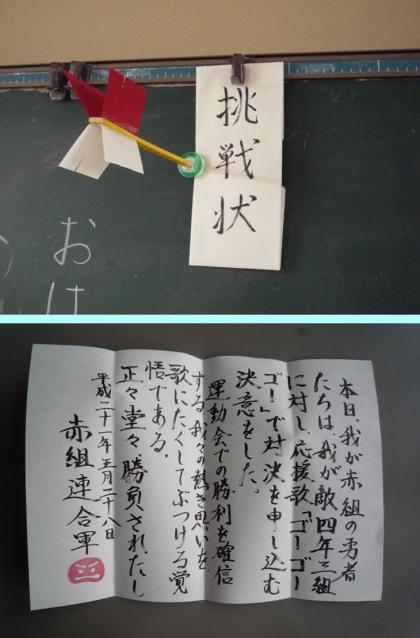 挑戦状
おは
本日、我が赤組の勇者
たちは、我が敵四年三組
に対し、応援歌「ゴーゴー
ゴー」で対決を申し込む
決意をした。
運動会での勝利を確信
する、我々の熱き思いを
歌にたくしてぶつける覚
悟である。
正々堂々、勝負されたし
平成二十一年五月二十八日
赤組連合軍